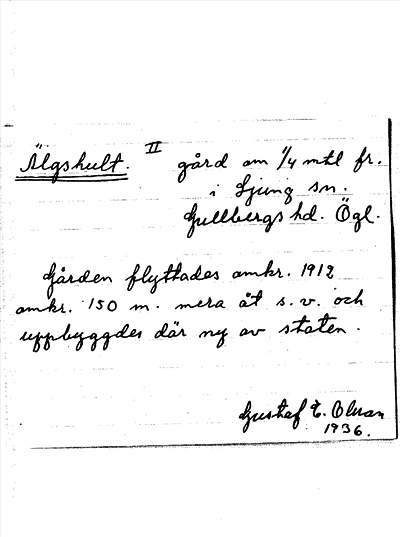 Älgshult. II gård om 1/4 mtl fr.
i Ljung sn.
Gullbergs hd. Ögl.
Gården flyttades omkr. 1912
omkr. 150 m. mera åt s.v. och
uppbyggdes där ny av staten.
Gustaf E. Olsson
1936.